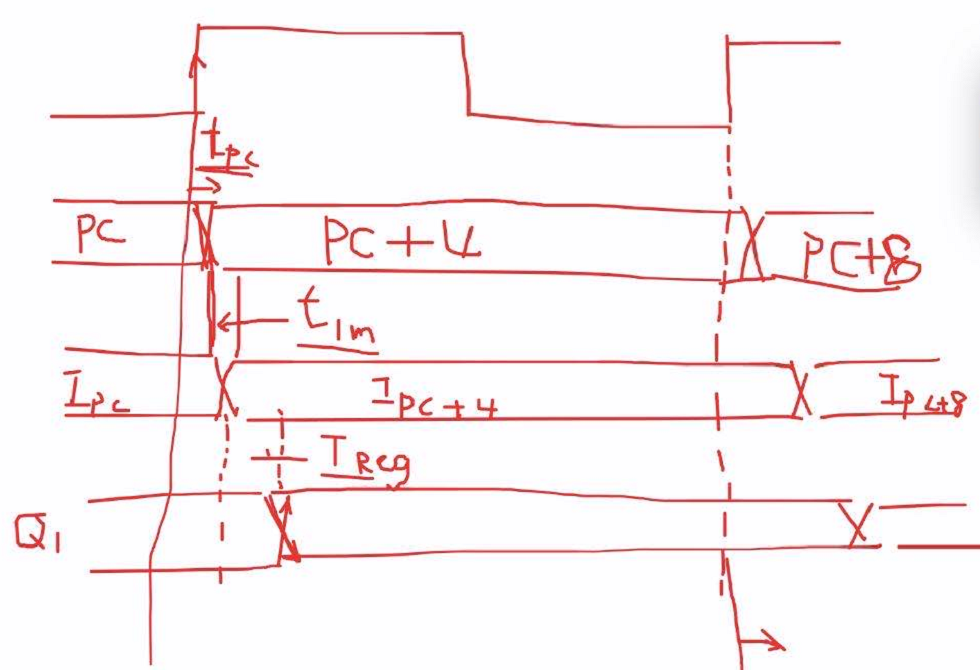 tpc
PC PC+4 PC+8
tIm
Ipc IPC+4 Ipc+8
TReg
Q1